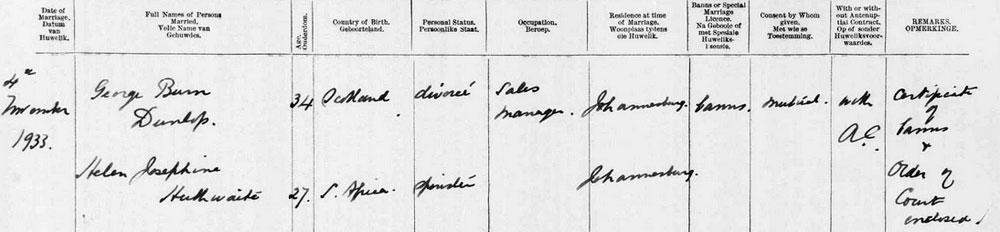 Date of
Marriage.
Datum
van
Huwelik.
Full Names of Persons
Married.
Volle Name van
Gehuwdes.
Age.
Ouderdom.
Country of Birth.
Geboorteland.
Personal Status.
Persoonlike Staat.
Occupation.
Beroep.
Residence at time
of Marriage.
Woonplaas tydens
die Huwelik.
Banns or Special
Marriage
Licence.
Na Geboole of
met Spesiale
Huweliks-
lisensie.
Consent by Whom
given.
Met wie se
Toestemming.
With or with-
out Antenup-
tial Contract.
Op of sonder
Huweliksvoor-
waardes.
REMARKS.
OPMERKINGE.
4th
November
1933.
George Burn
Dunlop.
34
Scotland
divorcé
Sales
manager.
Johannesburg.
banns.
mutual.
with
A.C.
Certificate
of
banns
+
Order of
Court
enclosed
Helen Josephine
Huthwaite
27.
S. Africa.
spinster
Johannesburg.